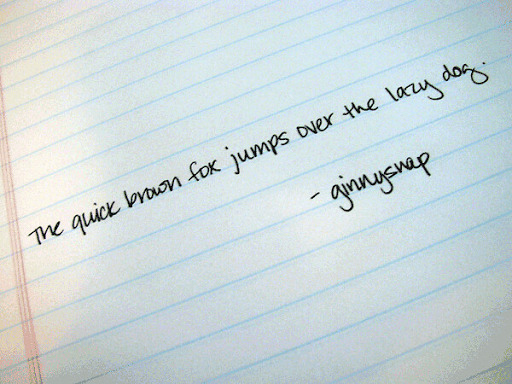 The quick brown fox jumps over the lazy dog.
- ginnysnap